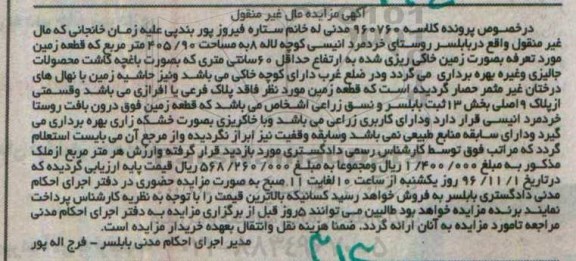 آگهی مزایده مال غیر منقول
درخصوص پرونده کلاسه ۹۶۰۷۶۰ مدنی له خانم ستاره فیروز پور بندپی علیه زمان خانجانی که مال
غیر منقول واقع دربابلسر روستای خردمرد انیسی کوچه لاله ۸به مساحت ۴۰۵/۹۰ متر مربع که قطعه زمین
مورد تعرفه بصورت زمین خاکی ریزی شده به ارتفاع حداقل ۶۰سانتی متری که بصورت باغچه کاشت محصولات
جالیزی وغیره بهره برداری می گردد ودر ضلع غرب دارای کوچه خاکی می باشد ونیز حاشیه زمین با نهال های
درختان غیر مثمر حصار گردیده است که قطعه زمین مورد نظر فاقد پلاک فرعی یا افرازی می باشد وقسمتی
ازپلاک ۹اصلی بخش ۱۳ثبت بابلسر و نسق زراعی اشخاص می باشد که قطعه زمین فوق درون بافت روستا
خردمرد انیسی قرار دارد ودارای کاربری زراعی می باشد وبا خاکریزی بصورت خشکه زاری بهره برداری می
گیرد ودارای سابقه منابع طبیعی نمی باشد وسابقه وقفیت نیز ابراز نگردیده واز مرجع آن می بایست استعلام
گردد که مراتب فوق توسط کارشناس رسمی دادگستری مورد بازدید قرار گرفته وارزش هر متر مربع ازملک
مذکور به مبلغ ۱/۴۰۰/۰۰۰ ریال ومجموعا به مبلغ ۵۶۸/۲۶۰/۰۰۰ ریال قیمت پایه ارزیابی گردیده که
درتاریخ ۹۶/۱۱/۱ روز یکشنبه از ساعت ۱۰لغایت ۱۱ صبح به صورت مزایده حضوری در دفتر اجرای احکام
مدنی دادگستری بابلسر به فروش خواهد رسید کسانیکه بالاترین قیمت را با توجه به نظریه کارشناس پرداخت
نمایند برنده مزایده خواهد بود طالبین می توانند ۵روز قبل از برگزاری مزایده به دفتر اجرای احکام مدنی
مراجعه تامورد مزایده به آنان ارائه گردد. ضمنا هزینه نقل وانتقال بعهده خریدار مزایده است.
مدیر اجرای احکام مدنی بابلسر - فرج اله پور